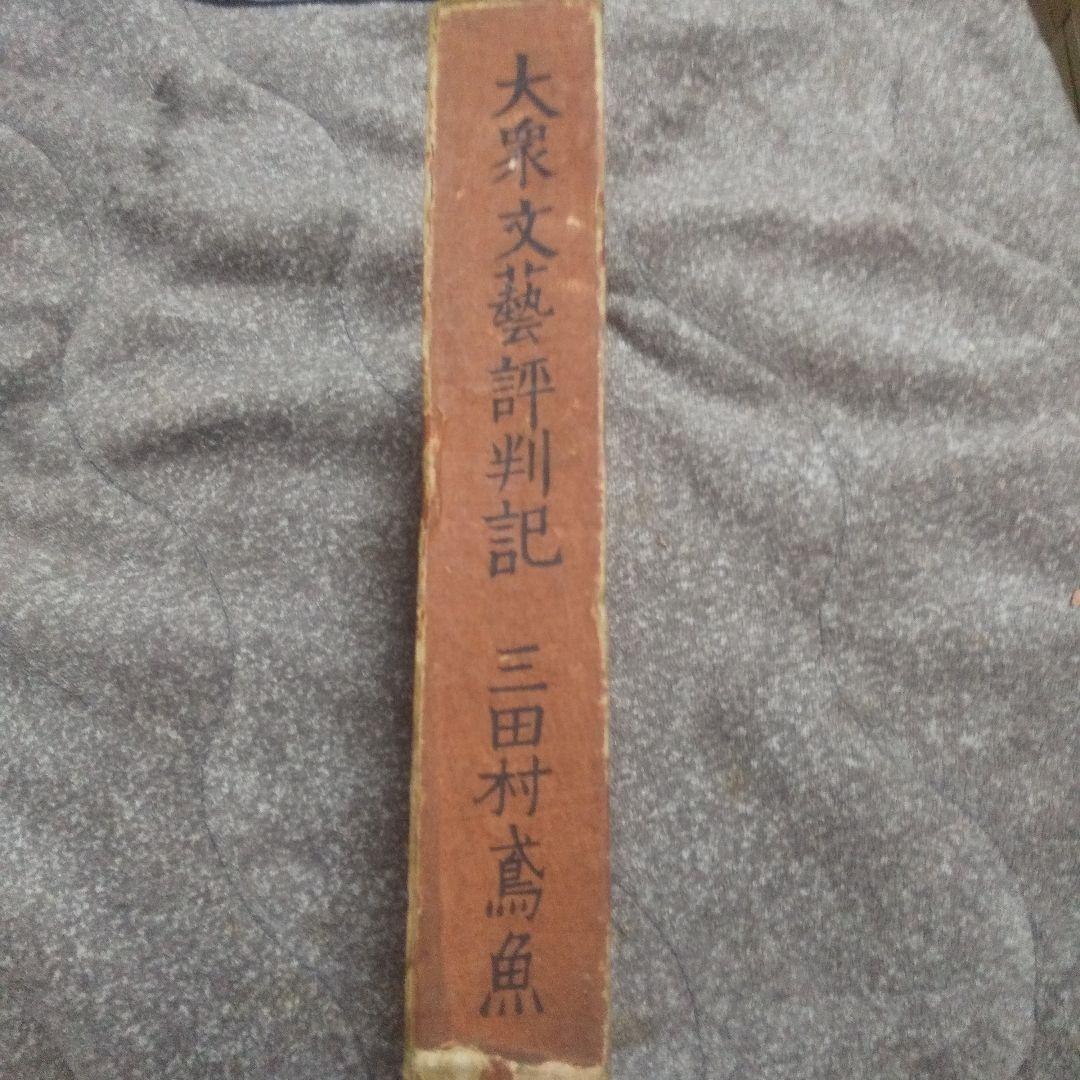 大衆文藝評判記 三田村鳶魚